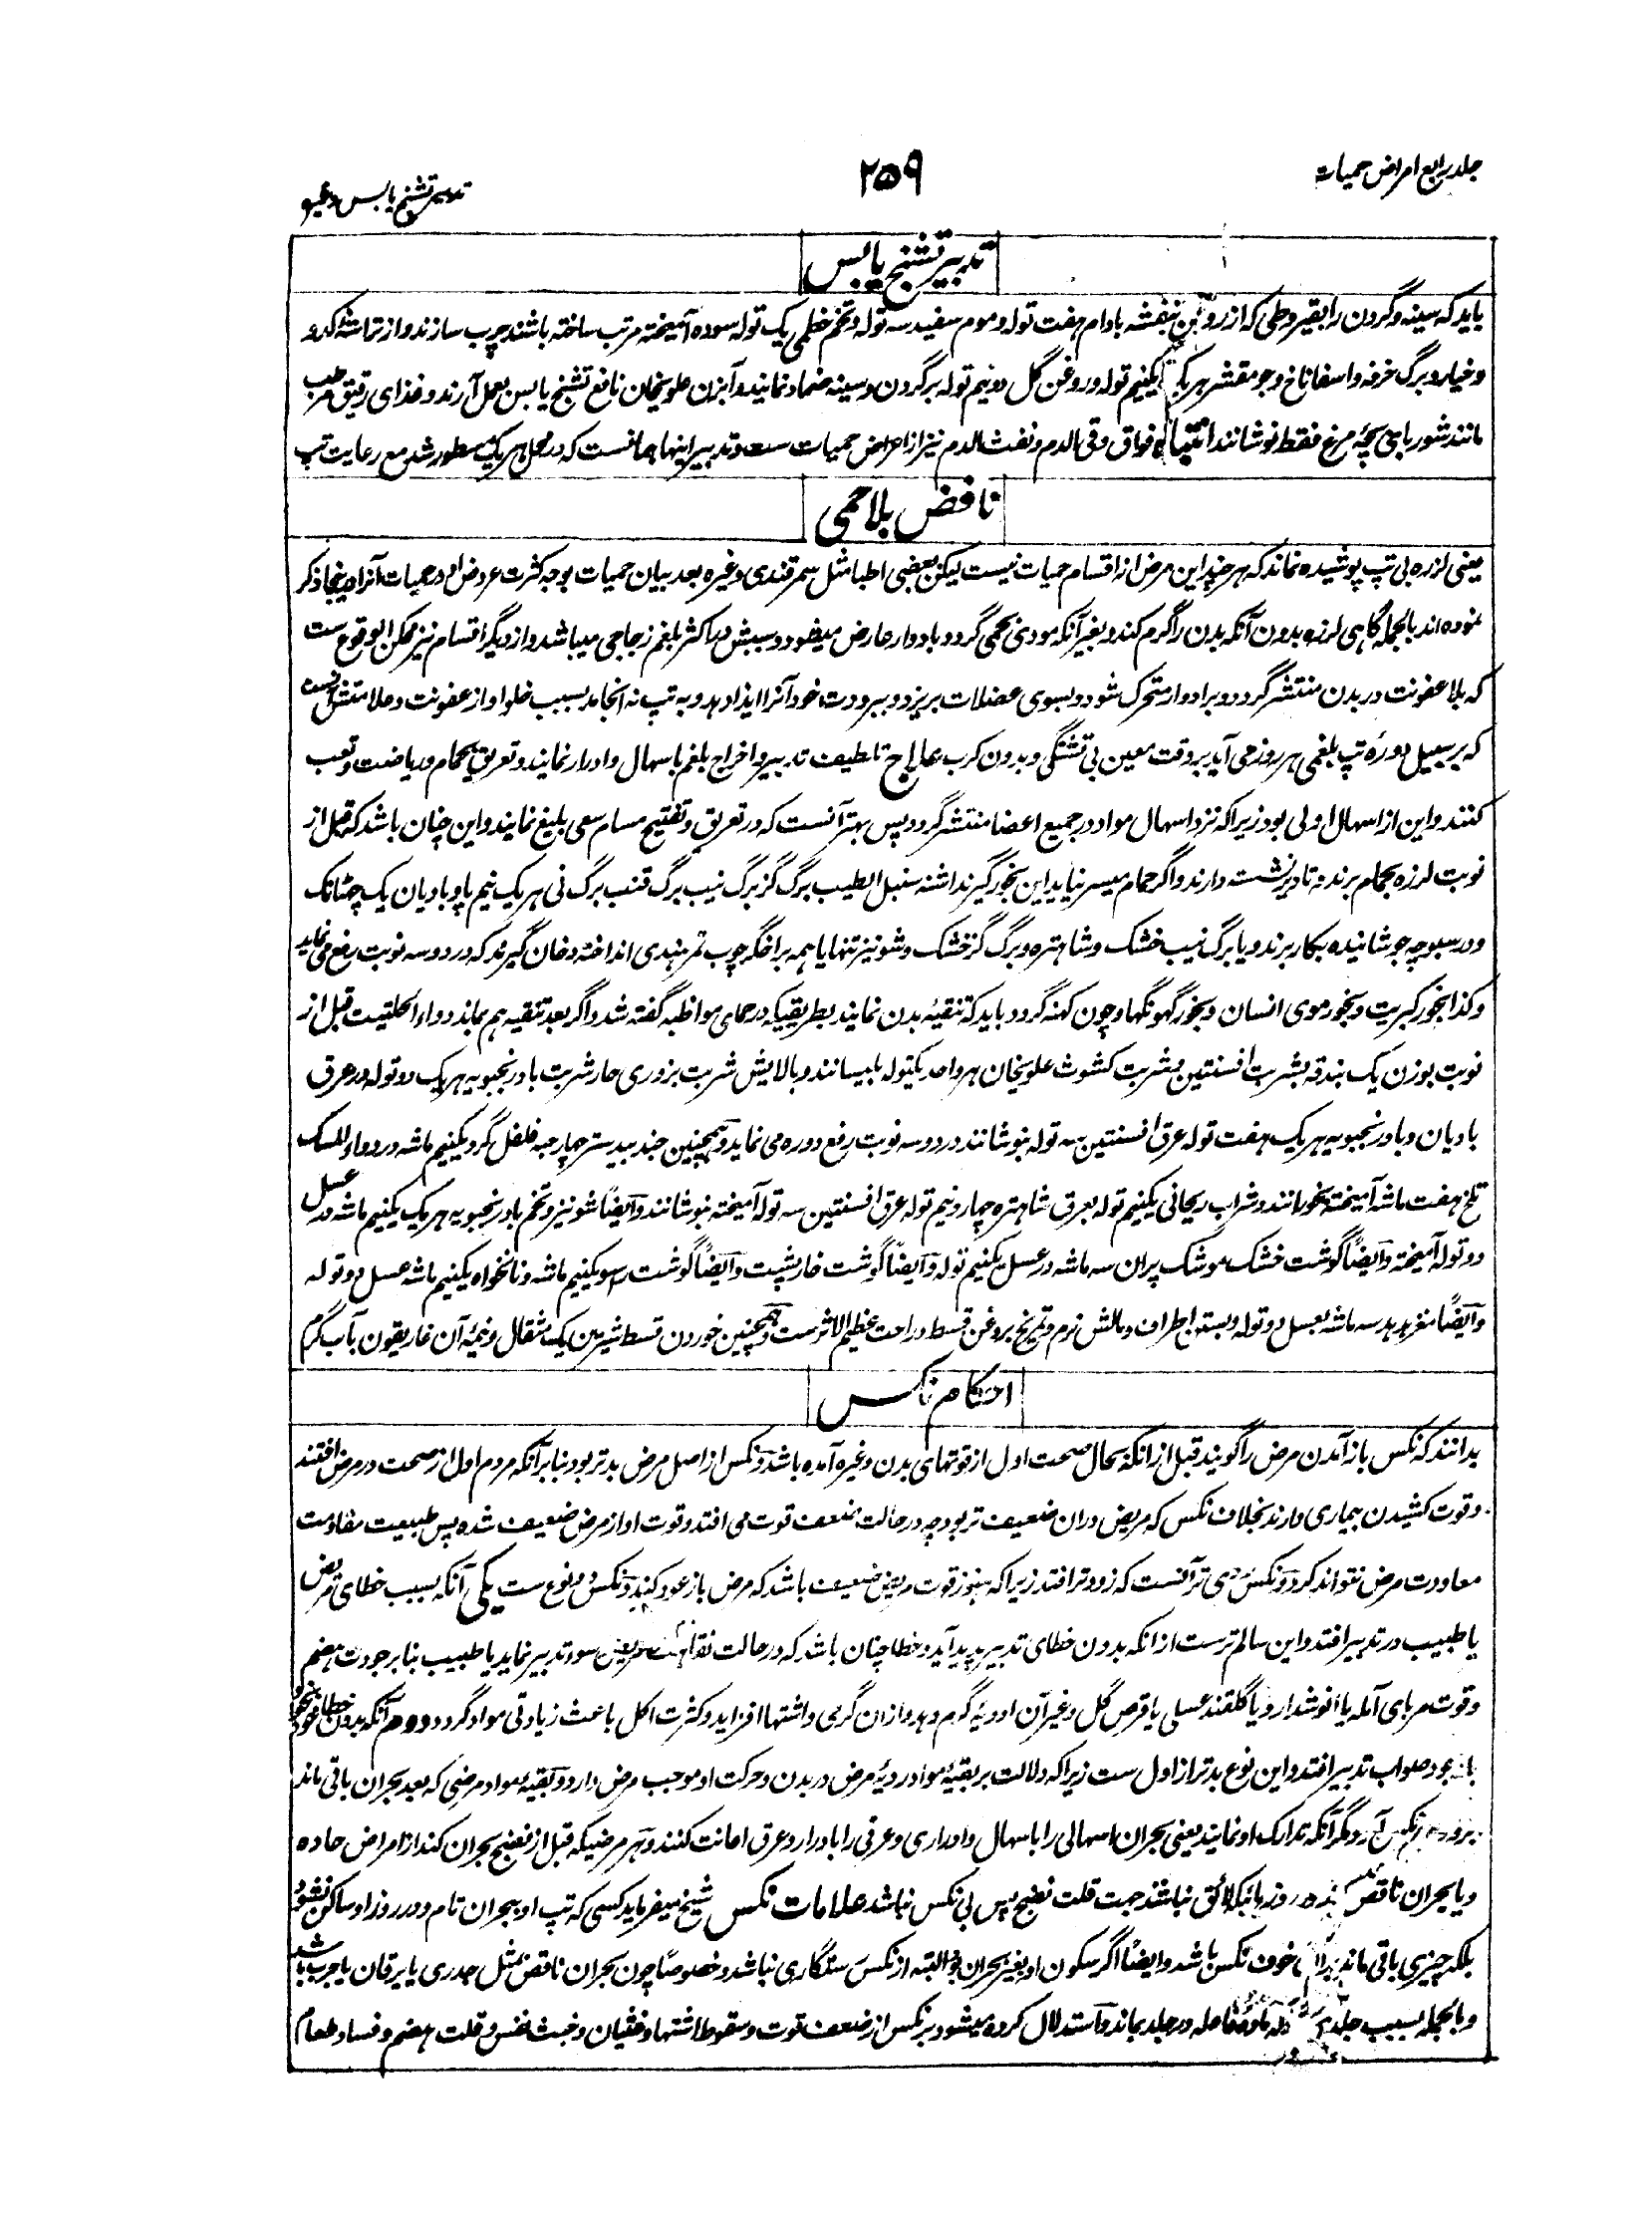 جلد رابع امراض حمیات
۲۵۹
تدبیر تشنج یابس وغیره
تدبیر تشنج یابس
باید که سینه و گردن را بقیروطی که از روغن بنفشه بادام هفت توله و موم سفید سه توله و تخم خطمی یک توله سوده آمیخته مرتب ساخته باشند چرب سازند و از تراشهٔ کدو
و خیار و برگ خرفه و اسفاناخ و جو مقشر هریک یکنیم توله و روغن گل دو نیم توله بر گردن و سینه ضماد نمایند و آبزن علویخان نافع تشنج یابس بعمل آرند و غذای رقیق مرطب
مانند شوربای بچهٔ مرغ فقط نوشانند انتباه فواق و قی الدم و نفث الدم نیز از اعراض حمیات ست و تدبیر اینها همانست که در محل هریک مسطور شد مع رعایت تپ
نافض بلا حمی
یعنی لرزه بی تپ پوشیده نماند که هرچند این مرض از اقسام حمیات نیست لیکن بعضی اطبا مثل سمرقندی وغیره بعد بیان حمیات بوجه کثرت عروض او در حمیات آنرا درینجا ذکر
نموده اند بالجمله گاهی لرزه بدون آنکه بدن را گرم کند و بغیر آنکه مودی بحمی گردد بادوار عارض میشود و سببش در اکثر بلغم زجاجی میباشد و از دیگر اقسام نیز ممکن الوقوع ست
که بلا عفونت در بدن منتشر گردد و برادوار متحرک شود و بسوی عضلات بریزد و ببرودت خود آنرا ایذا دهد و به تپ نه انجامد بسبب خلو او از عفونت و علامتش آنست
که بر سبیل دورهٔ تپ بلغمی هر روز می آید بر وقت معین بی تشنگی و بدون کرب علاج تلطیف تدبیر و اخراج بلغم باسهال و ادرار نمایند و تعریق بحمام و ریاضت و تعب
کنند و این از اسهال اولی بود زیرا که نزد اسهال مواد در جمیع اعضا منتشر گردد پس بهتر آنست که در تعریق و تفتیح مسام سعی بلیغ نمایند و این چنان باشد که قبل از
نوبت لرزه بحمام برند و تا دیر نشست دارند و اگر حمام میسر نیاید این بخور گیرند اشنه سنبل الطیب برگ گز برگ نیب برگ قنب برگ نی هریک نیم پاو بادیان یک چٹانک
و در سبوچه جوشانیده بکار برند و یا برگ نیب خشک و شاهتره و برگ گز خشک و شونیز تنها یا همه بر اخگر چوب تمرهندی انداخته دخان گیرند که در دو سه نوبت رفع می نماید
و کذا بخور کبریت و بخور موی انسان و بخور گهونگها و چون کهنه گردد باید که تنقیهٔ بدن نمایند بطریقیکه در حمای مواظبه گفته شد و اگر بعد تنقیه هم بماند دواء الحلتیت قبل از
نوبت بوزن یک بندقه بشربت افسنتین و شربت کشوث علویخان هر واحد یکتوله بلیسانند و بالایش شربت بزوری حار شربت بادرنجبویه هریک دو توله در عرق
بادیان و بادرنجبویه هریک هفت توله عرق افسنتین سه توله بنوشانند در دو سه نوبت رفع دوره می نماید و همچنین جندبیدستر چهار حبه فلفل گرد یکنیم ماشه در دواء المسک
تلخ هفت ماشه آمیخته بخورانند و شراب ریحانی یکنیم توله بعرق شاهتره چهار و نیم توله عرق افسنتین سه توله آمیخته بنوشانند و ایضاً شونیز و تخم بادرنجبویه هریک یکنیم ماشه در عسل
دو توله آمیخته و ایضاً گوشت خشک موشک پران سه ماشه در عسل یکنیم توله و ایضاً گوشت خارپشت و ایضاً گوشت راسو یکنیم ماشه و نانخواه یکنیم ماشه عسل دو توله
و ایضاً مغز هدهد سه ماشه بعسل دو توله و بستن اطراف و مالش نرم و تمریخ بروغن قسط در راحت عظیم الاثرست و همچنین خوردن قسط شیرین یک مثقال و نیمهٔ آن غاریقون بآب گرم
احکام نکس
بدانند که نکس باز آمدن مرض را گویند قبل ازانکه بحال صحت اول از قوتهای بدن وغیره آمده باشد و نکس از اصل مرض بدتر بود بنابر آنکه مردم اول از صحت در مرض افتند
و قوت کشیدن بیماری دارند بخلاف نکس که مریض دران ضعیف تر بود چه در حالت ضعف قوت می افتد و قوت او از مرض ضعیف شده پس طبیعت مقاومت
معاودت مرض نتواند کرد و نکس ردی تر آنست که زودتر افتد زیرا که هنوز قوت مریض ضعیف باشد که مرض باز عود کند و نکس دو نوع ست یکی آنکه بسبب خطای مریض
یا طبیب در تدبیر افتد و این سالم ترست ازانکه بدون خطای تدبیر پدید آید و خطا چنان باشد که در حالت نقاهت مریض سوء تدبیر نماید یا طبیب بنابر جودت هضم
و قوت مربای آمله یا انوشدارو یا گلقند عسلی یا قرص گل و غیر آن ادویهٔ گرم دهد و ازان گرمی و اشتها افزاید و کثرت اکل باعث زیادتی مواد گردد دوم آنکه بدون خطا خود بخود
با وجود صواب تدبیر افتد و این نوع بدتر از اول ست زیرا که دلالت بر بقیهٔ مواد ردیهٔ مرض در بدن و حرکت او موجب مرض دارد و بقیهٔ مواد مرضی که بعد بحران باقی ماند
نکس آرد مگر آنکه تدارک او نمایند یعنی بحران اسهالی را باسهال و ادراری و عرقی را بادرار و عرق اعانت کنند و هر مرضیکه قبل از نضج بحران کند از امراض حاده
و یا بحران ناقص روز یا بنکه لائق نباشد جهت قلت نضج پس بی نکس نباشد علامات نکس شیخ میفرماید کسی که تپ او ببحران تام و در روز او ساکن نشود
بلکه چیزی باقی ماند خوف نکس باشد و ایضاً اگر سکون او بغیر بحران بود البته از نکس رستگاری نباشد و خصوصاً چون بحران ناقص مثل جدری یا یرقان یا جرب باشد
و بالجمله بسبب جلد ماده فاصله در جلد بماند و استدلال کرده میشود بر نکس از ضعف قوت و سقوط اشتها و غثیان و خبث نفس و قلت هضم و فساد طعام